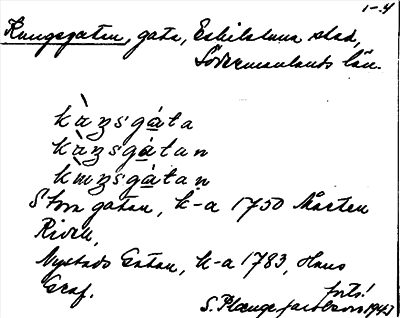 1-4
Kungsgatan, gata, Eskilstuna stad,
Södermanlands län.
kàzsgáta
kàzsgátan
kmzsgátan
Stora gatan, k-a 1750 Mårten
Nystads Gatan, k-a 1783, Hans
Graf.
forts!
S. Plænge Jacobson 1947